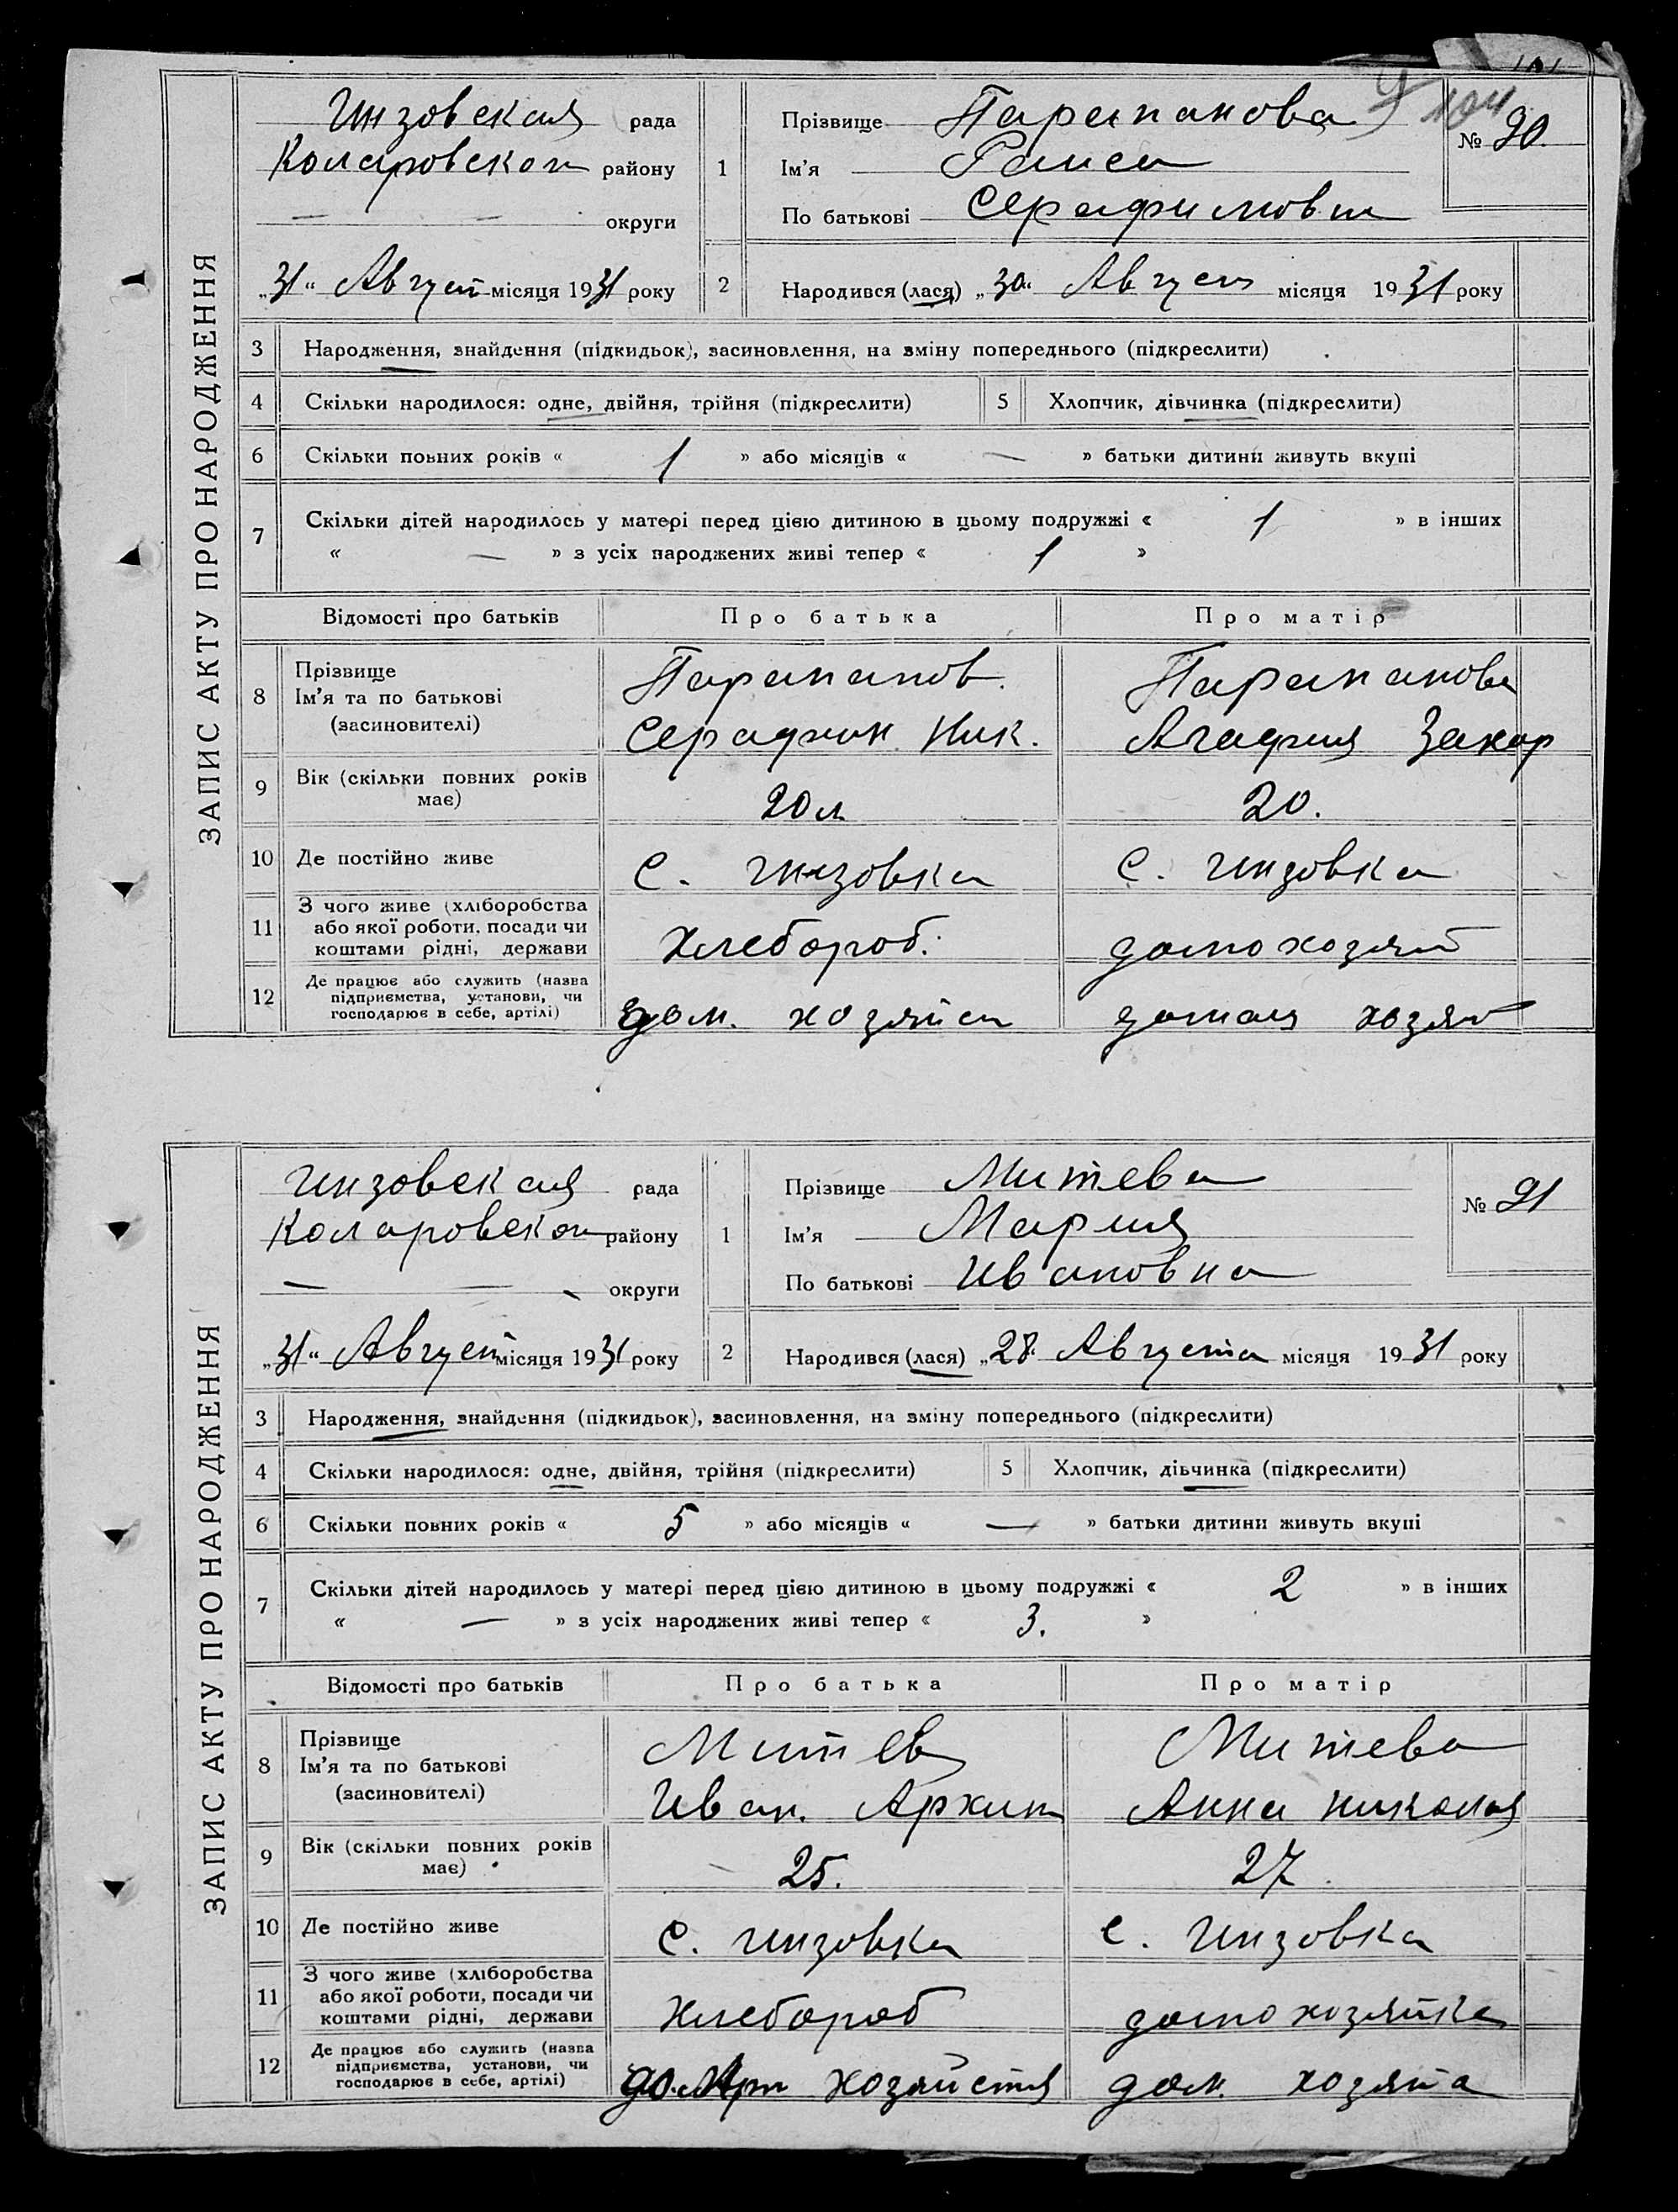 ЗАПИС АКТУ ПРО НАРОДЖЕННЯ
Инзовская рада
Коларовског району
— — округи
„31“ Август місяця 1931 року
1
Прізвище Парапанова
Ім'я Раиса
По батькові Серафимовна
104
№ 90.
2 Народився (лася) „30“ Август місяця 1931 року
3 Народження, знайдення (підкидьок), засиновлення, на зміну попереднього (підкреслити)
4 Скільки народилося: одне, двійня, трійня (підкреслити) 5 Хлопчик, дівчинка (підкреслити)
6 Скільки повних років « 1 » або місяців « — » батьки дитини живуть вкупі
7 Скільки дітей народилось у матері перед цією дитиною в цьому подружжі « 1 » в інших
« — » з усіх народжених живі тепер « 1 »
Відомості про батьків Про батька Про матір
8 Прізвище Ім'я та по батькові (засиновителі) Парапанов. Серафим Ник. Парапанова Агафия Захар
9 Вік (скільки повних років має) 20 л 20.
10 Де постійно живе с. Инзовка с. Инзовка
11 З чого живе (хліборобства або якої роботи, посади чи коштами рідні, держави Хлебороб. домохозяй
12 Де працює або служить (назва підприємства, установи, чи господарює в себе, артілі) дом. хозяйся домаш хозяй
ЗАПИС АКТУ ПРО НАРОДЖЕННЯ
Инзовская рада
Коларовског району
— — округи
„31“ Август місяця 1931 року
1
Прізвище Митева
Ім'я Мария
По батькові Ивановна
№ 91
2 Народився (лася) „28“ Августа місяця 1931 року
3 Народження, знайдення (підкидьок), засиновлення, на зміну попереднього (підкреслити)
4 Скільки народилося: одне, двійня, трійня (підкреслити) 5 Хлопчик, дівчинка (підкреслити)
6 Скільки повних років « 5 » або місяців « — » батьки дитини живуть вкупі
7 Скільки дітей народилось у матері перед цією дитиною в цьому подружжі « 2 » в інших
« — » з усіх народжених живі тепер « 3. »
Відомості про батьків Про батька Про матір
8 Прізвище Ім'я та по батькові (засиновителі) Митев Иван. Архип Митева Анна Николая
9 Вік (скільки повних років має) 25. 27
10 Де постійно живе с. Инзовка с. Инзовка
11 З чого живе (хліборобства або якої роботи, посади чи коштами рідні, держави Хлебороб домохозяйка
12 Де працює або служить (назва підприємства, установи, чи господарює в себе, артілі) хозяйств дом. хозяйта